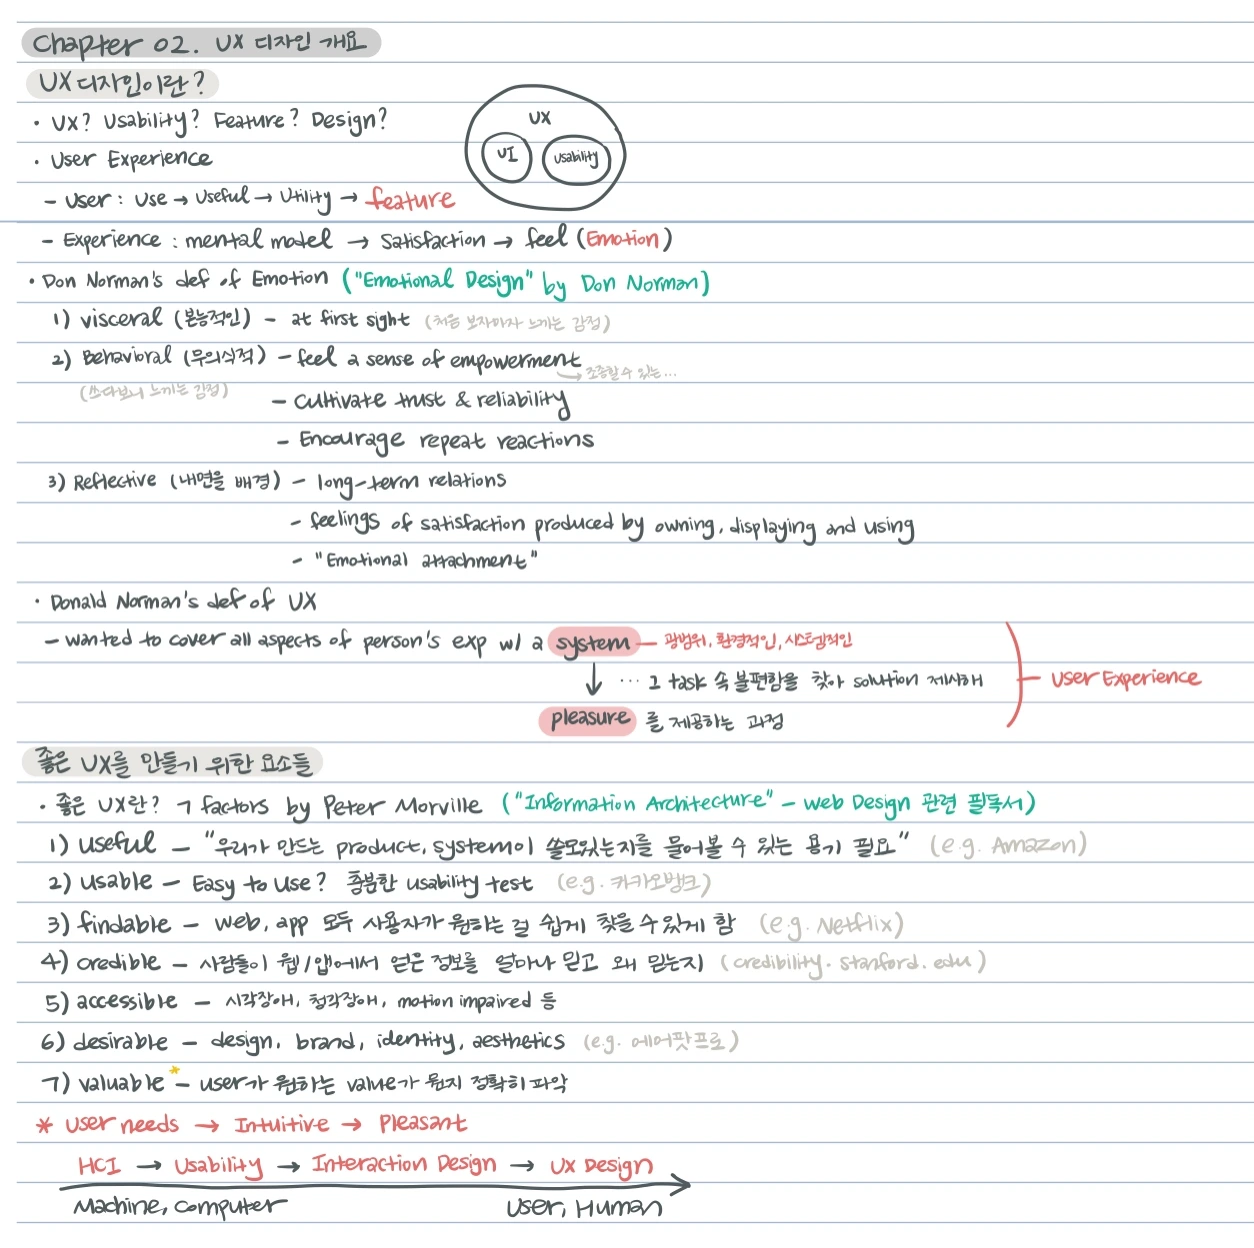 Chapter 02. UX 디자인 개요
UX 디자인이란?
· UX? Usability? Feature? Design?
UX
UI
Usability
· User Experience
- User : Use → Useful → Utility → feature
- Experience : mental model → Satisfaction → feel (Emotion)
· Don Norman's def of Emotion ("Emotional Design" by Don Norman)
1) visceral (본능적인) - at first sight (처음 보자마자 느끼는 감정)
2) Behavioral (무의식적) - feel a sense of empowerment
→ 조종할 수 있는...
(쓰다보니 느끼는 감정)
- cultivate trust & reliability
- Encourage repeat reactions
3) Reflective (내면을 배경) - long-term relations
- feelings of satisfaction produced by owning, displaying and using
- "Emotional attachment"
· Donald Norman's def of UX
- wanted to cover all aspects of person's exp w/ a system - 광범위, 환경적인, 시스템적인
↓ ... 그 task 속 불편함을 찾아 solution 제시해
- User Experience
pleasure 를 제공하는 과정
좋은 UX를 만들기 위한 요소들
· 좋은 UX란? 7 factors by Peter Morville ("Information Architecture" - Web Design 관련 필독서)
1) useful - "우리가 만드는 product, system이 쓸모있는지를 물어볼 수 있는 용기 필요" (e.g. Amazon)
2) usable - Easy to Use? 충분한 usability test (e.g. 카카오뱅크)
3) findable - web, app 모두 사용자가 원하는 걸 쉽게 찾을 수 있게 함 (e.g. Netflix)
4) credible - 사람들이 웹/앱에서 얻은 정보를 얼마나 믿고 왜 믿는지 (credibility.stanford.edu)
5) accessible - 시각장애, 청각장애, motion impaired 등
6) desirable - design, brand, identity, aesthetics (e.g. 에어팟 프로)
7) valuable* - user가 원하는 value가 뭔지 정확히 파악
* User needs → Intuitive → Pleasant
HCI → Usability → Interaction Design → UX Design
Machine, Computer User, Human